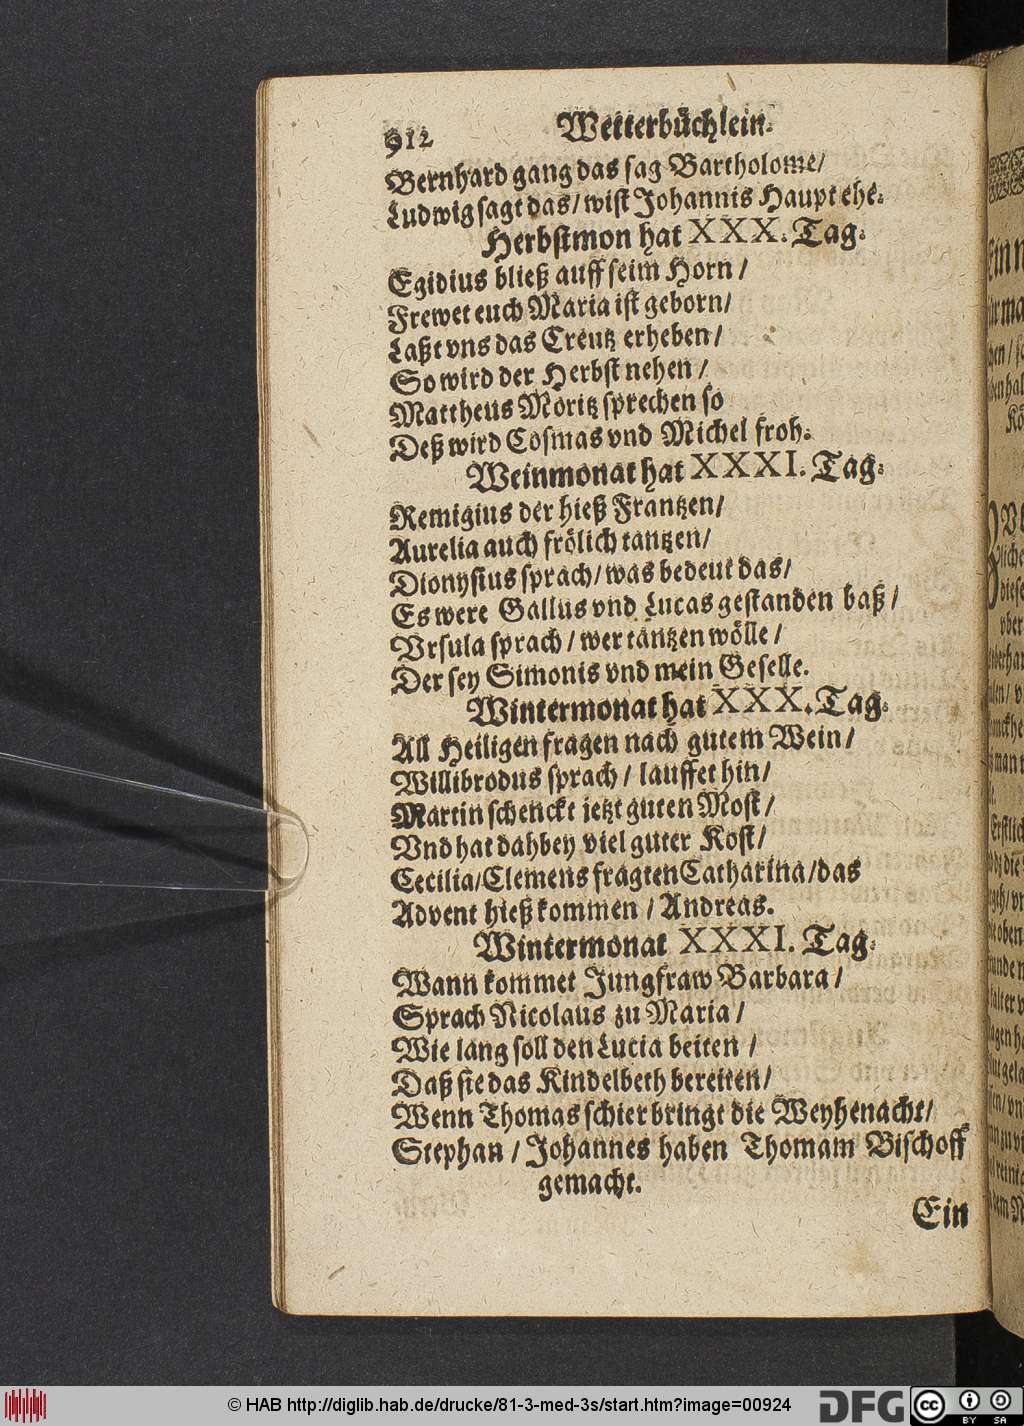 912 Wetterbüchlein.
Bernhard gang das sag Bartholome/
Ludwig sagt das/ wist Johannis Haupt ehe.
Herbstmon hat XXX. Tag.
Egidius bließ auff seim Horn/
Frewet euch Maria ist geborn/
Laßt vns das Creutz erheben/
So wird der Herbst nehen/
Mattheus Moritz sprechen so
Deß wird Cosmas vnd Michel froh.
Weinmonat hat XXXI. Tag.
Remigius der hieß Frantzen/
Aurelia auch frölich tantzen/
Dionysius sprach/ was bedeut das/
Es were Gallus vnd Lucas gestanden baß/
Vrsula sprach/ wer tantzen wölle/
Der sey Simonis vnd mein Geselle.
Wintermonat hat XXX. Tag.
All Heiligen fragen nach gutem Wein/
Willibrodus sprach/ lauffet hin/
Martin schenckt jetzt guten Most/
Vnd hat dahbey viel guter Kost/
Cecilia/ Clemens fragten Catharina/ das
Advent hieß kommen/ Andreas.
Wintermonat XXXI. Tag.
Wann kommet Jungfraw Barbara/
Sprach Nicolaus zu Maria/
Wie lang soll den Lucia beiten/
Daß sie das Kindelbeth bereiten/
Wenn Thomas schier bringt die Weyhenacht/
Stephan/ Johannes haben Thomam Bischoff
gemacht.
Ein
© HAB http://diglib.hab.de/drucke/81-3-med-3s/start.htm?image=00924
DFG
cc BY SA